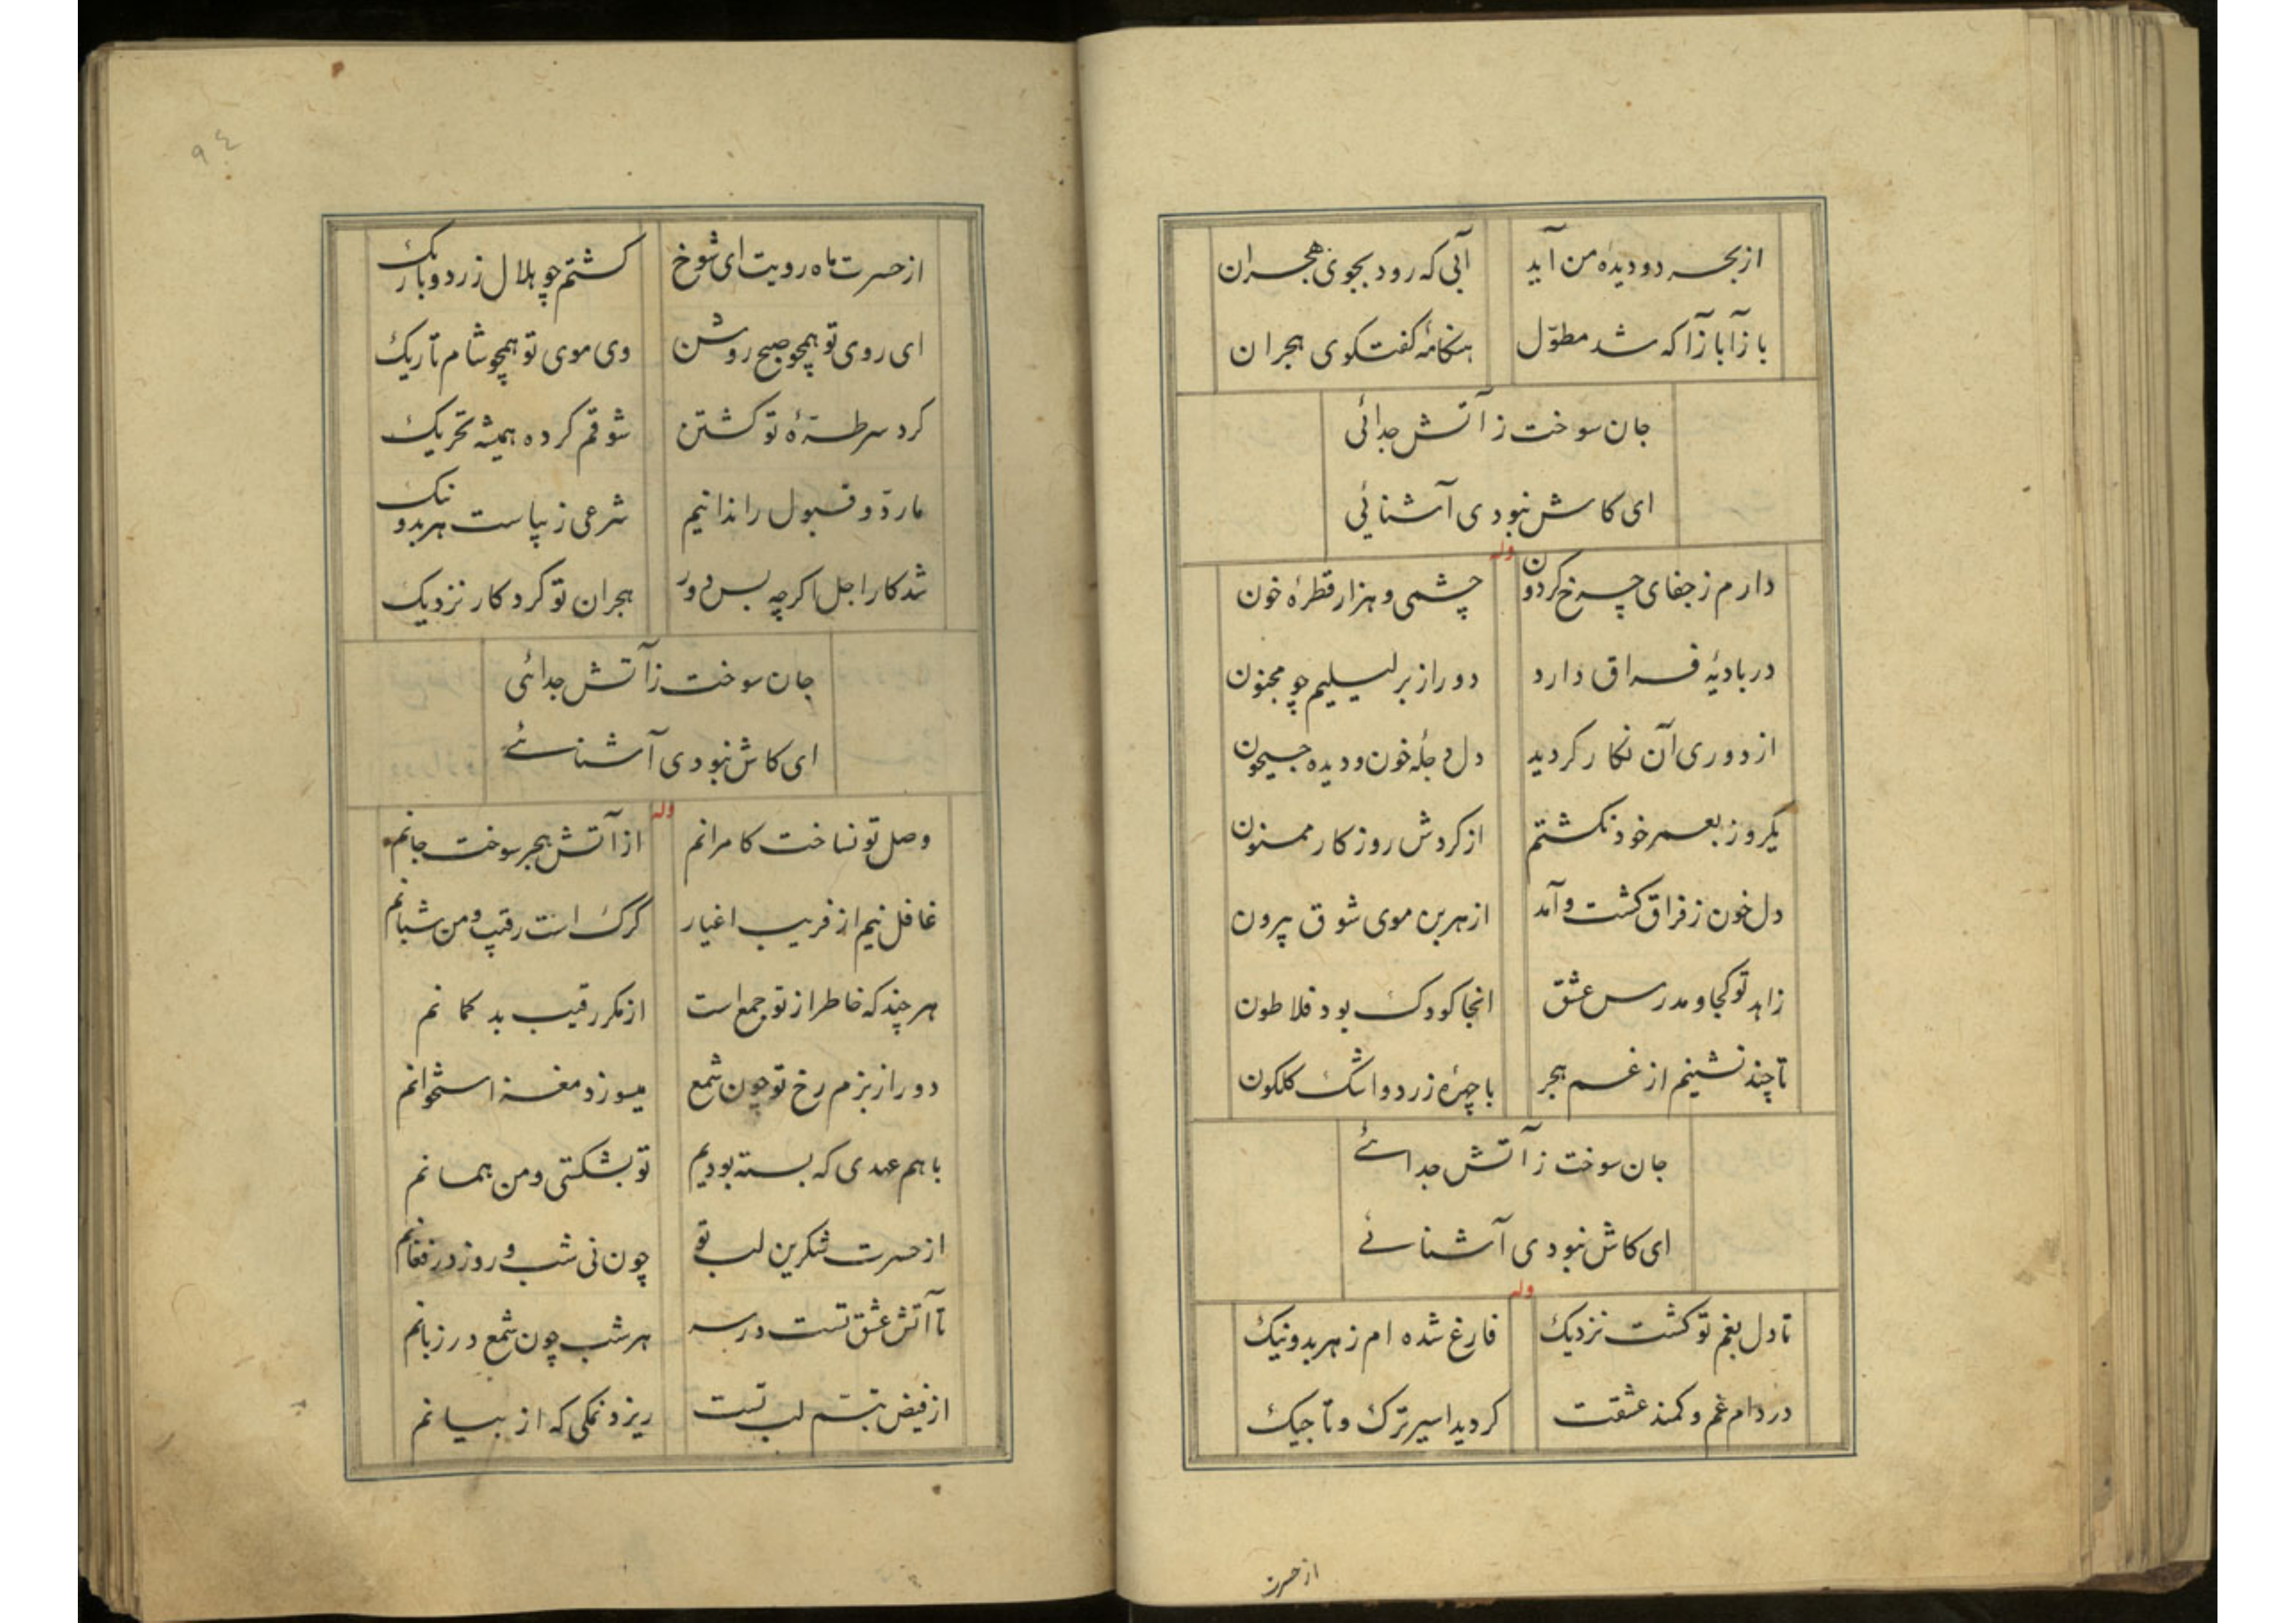 از بحر دو دیده من آید آبی که رود بجوی هجران
بازآ بازآ که شد مطوّل هنکامهٔ کفتکوی هجران
جان سوخت ز آتش جدائی
ای کاش نبودی آشنائی
وله
دارم ز جفای چرخ کردون چشمی و هزار قطرهٔ خون
در بادیهٔ فراق دارد دور از بر لیلیم چو مجنون
از دوری آن نکار کردید دل دجلهٔ خون و دیده جیحون
یکروز بعمر خود نکشتم از کردش روزکار ممنون
دل خون ز فراق کشت و آمد از هر بن موی شوق بیرون
زاهد تو کجا و مدرس عشق انجا کودک بود فلاطون
تا چند نشینم از غم هجر با چهرهٔ زرد و اشک کلکون
جان سوخت ز آتش جدائے
ای کاش نبودی آشنائے
وله
تا دل بغم تو کشت نزدیک فارغ شده ام ز هر بد و نیک
در دام غم و کمند عشقت کردید اسیر ترک و تاجیک
از حسرت
٩٤
از حسرت ماه رویت ای شوخ کشتم چو هلال زرد و باریک
ای روی تو همچو صبح روشن وی موی تو همچو شام تاریک
کرد سر طرهٔ تو کشتن شوقم کرده همیشه تحریک
ما ردّ و قبول را ندانیم شرعی ز پیاست هر بد و نیک
شد کار اجل اکرچه بس دور هجران تو کرد کار نزدیک
جان سوخت ز آتش جدائی
ای کاش نبودی آشنائے
وله
وصل تو نساخت کامرانم از آتش هجر سوخت جانم
غافل نیم از فریب اغیار کرک است رقیب و من شبانم
هر چند که خاطر از تو جمع است از مکر رقیب بد کمانم
دور از بزم رخ تو چون شمع میسوزد مغز استخوانم
با هم عهدی که بسته بودیم تو بشکستی و من همانم
از حسرت شکرین لب تو چون نی شب و روز در فغانم
تا آتش عشق تست در سر هر شب چون شمع در زبانم
از فیض تبسّم لب تست ریزد نمکی که از بیانم